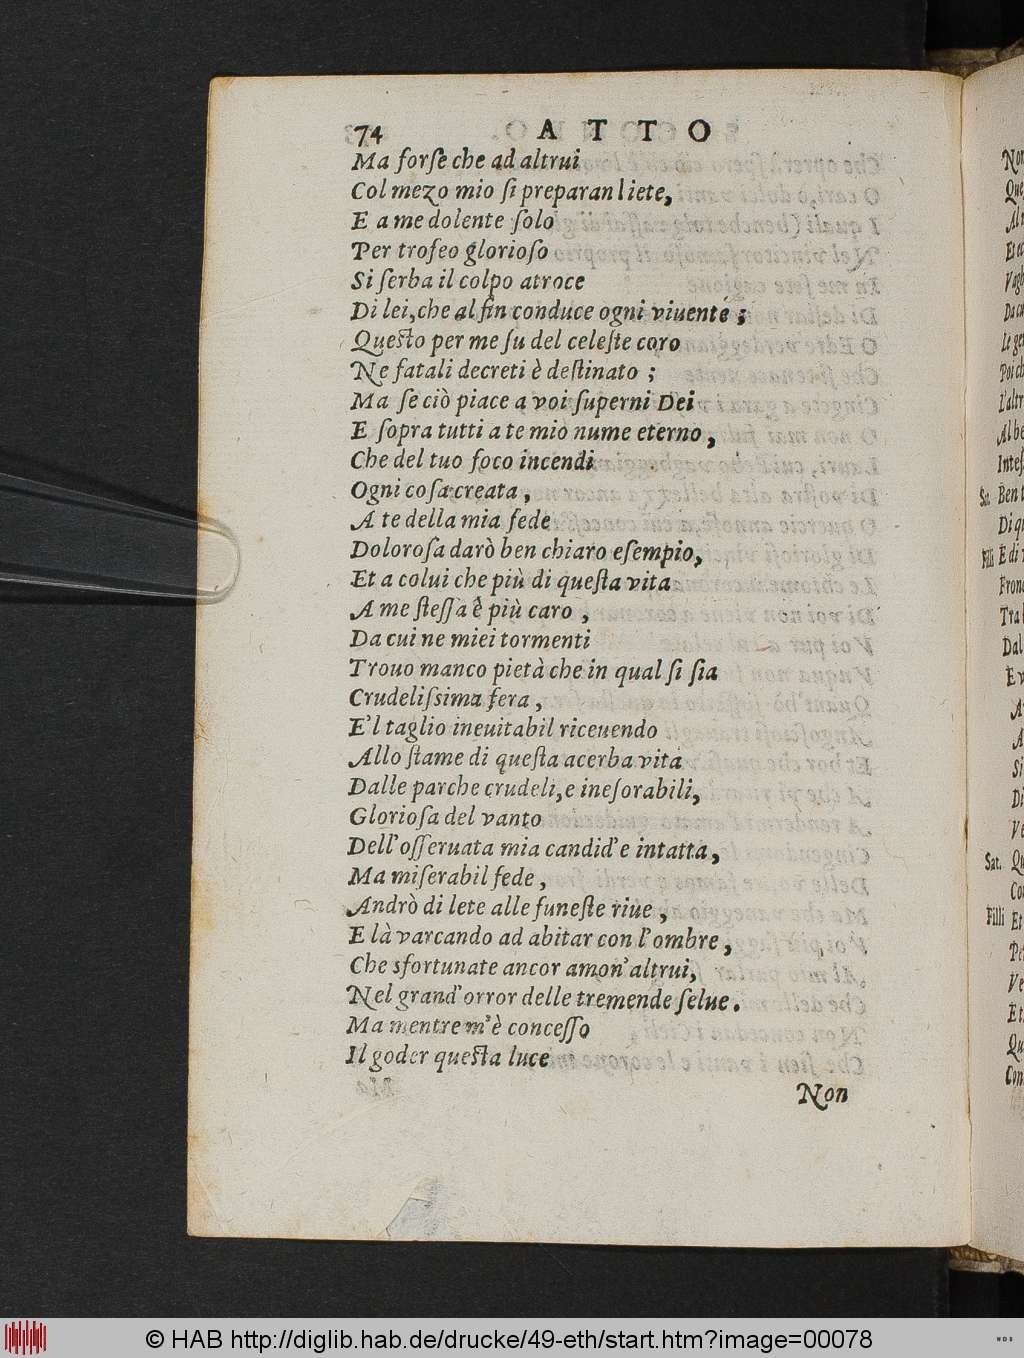 74 ATTO
Ma forſe che ad altrui
Col mezo mio ſi preparan liete,
E a me dolente ſolo
Per trofeo glorioſo
Si ſerba il colpo atroce
Di lei, che al fin conduce ogni viuente ;
Queſto per me fu del celeſte coro
Ne fatali decreti è deſtinato ;
Ma ſe ciò piace a voi ſuperni Dei
E ſopra tutti a te mio nume eterno,
Che del tuo foco incendi
Ogni coſa creata,
A te della mia fede
Doloroſa darò ben chiaro eſempio,
Et a colui che più di queſta vita
A me ſteſſa è più caro,
Da cui ne miei tormenti
Trouo manco pietà che in qual ſi ſia
Crudeliſſima fera,
E'l taglio ineuitabil riceuendo
Allo ſtame di queſta acerba vita
Dalle parche crudeli, e ineſorabili,
Glorioſa del vanto
Dell'oſſeruata mia candid'e intatta,
Ma miſerabil fede,
Andrò di lete alle funeſte riue,
E là varcando ad abitar con l'ombre,
Che sfortunate ancor amon'altrui,
Nel grand'orror delle tremende ſelue.
Ma mentre m'è conceſſo
Il goder queſta luce
Non
Sat.
Filli
Sat.
Filli
© HAB http://diglib.hab.de/drucke/49-eth/start.htm?image=00078